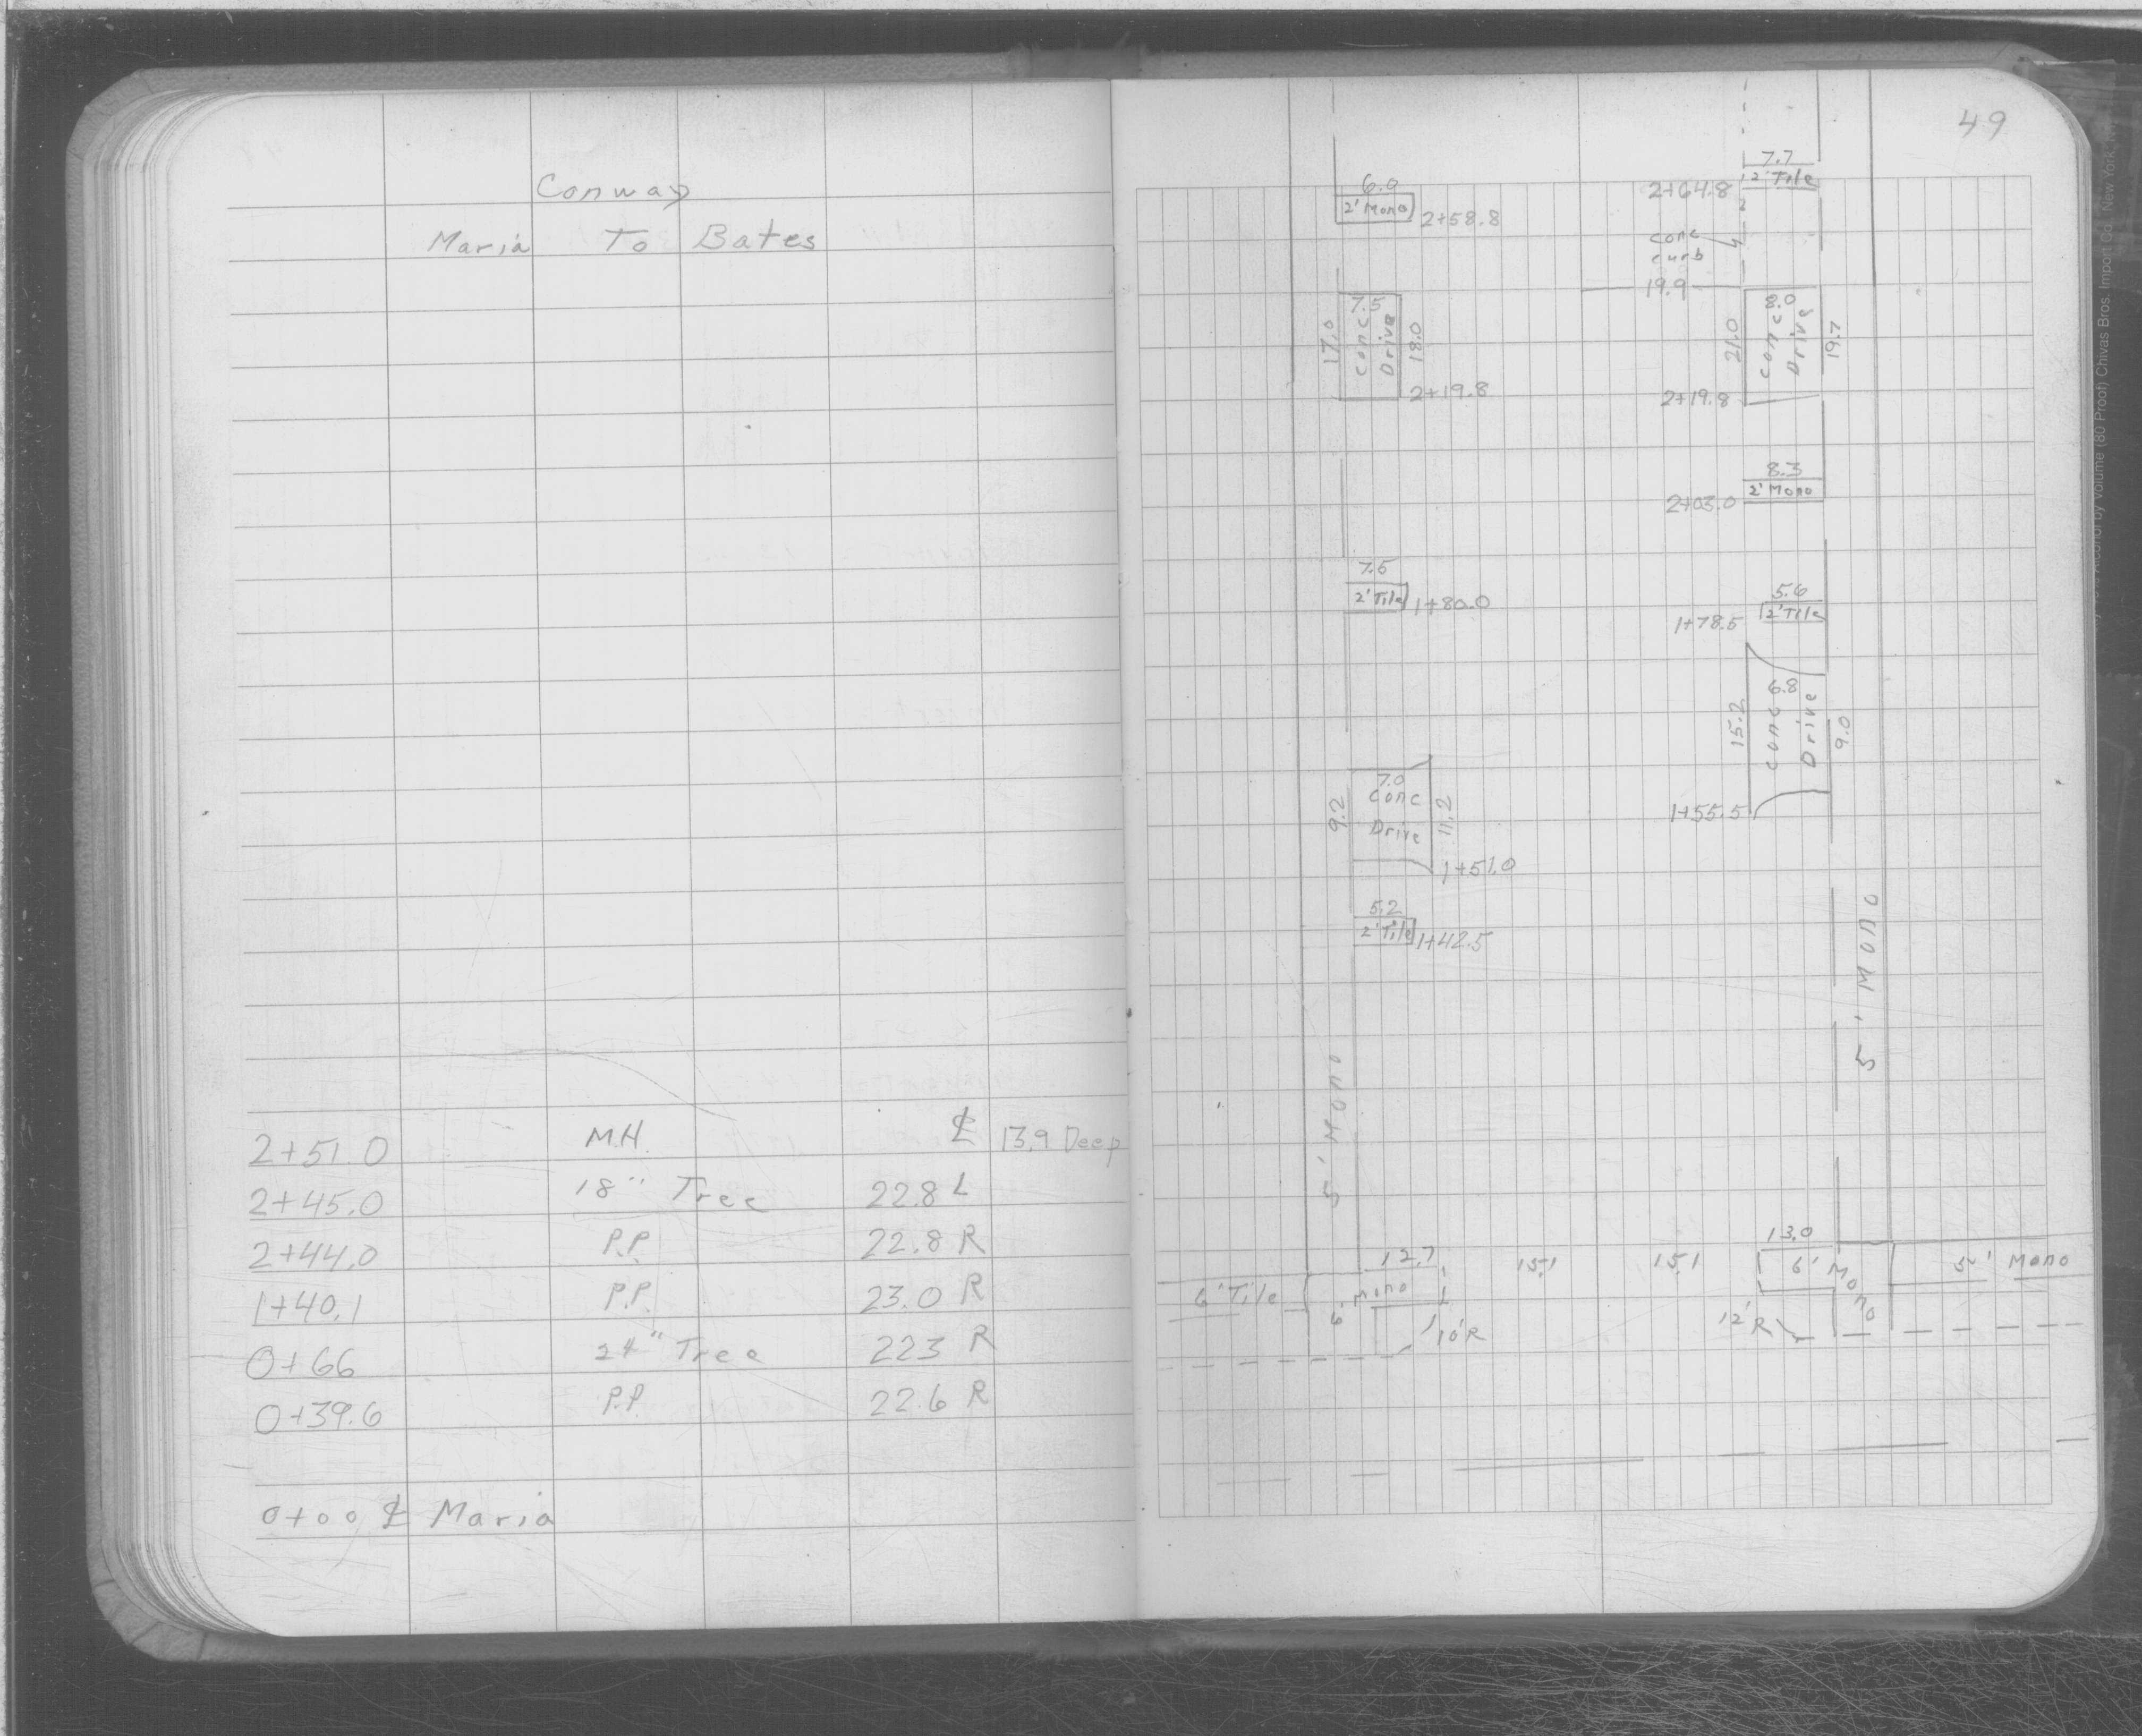 Conway
Maria To Bates
2+51.0 M.H. ℄ 13.9 Deep
2+45.0 18" Tree 22.8 L
2+44.0 P.P. 22.8 R
1+40.1 P.P. 23.0 R
0+66 24" Tree 223 R
0+39.6 P.P. 22.6 R
0+00 ℄ Maria
49
7.7
2+64.8 2' Tile
6.0
2' Mono 2+58.8
conc
curb
19.9
7.5
Conc
Drive
17.0
18.0
2+19.8
8.0
Conc
Drive
21.0
19.7
2+19.8
8.3
2' Mono
2+03.0
7.5
2' Tile 1+80.0
5.6
2' Tile
1+78.5
6.8
Conc
Drive
15.2
9.0
1+55.5
7.0
Conc
Drive
9.2
11.2
1+51.0
5.2
2' Tile 1+42.5
5' Mono
5' Mono
12.7 15.1 15.1 13.0
6' Tile 6' Mono 6' Mono 5' Mono
10'R 12'R
Alcohol by Volume (80 Proof) Chivas Bros. Import Co. New York, N.Y.